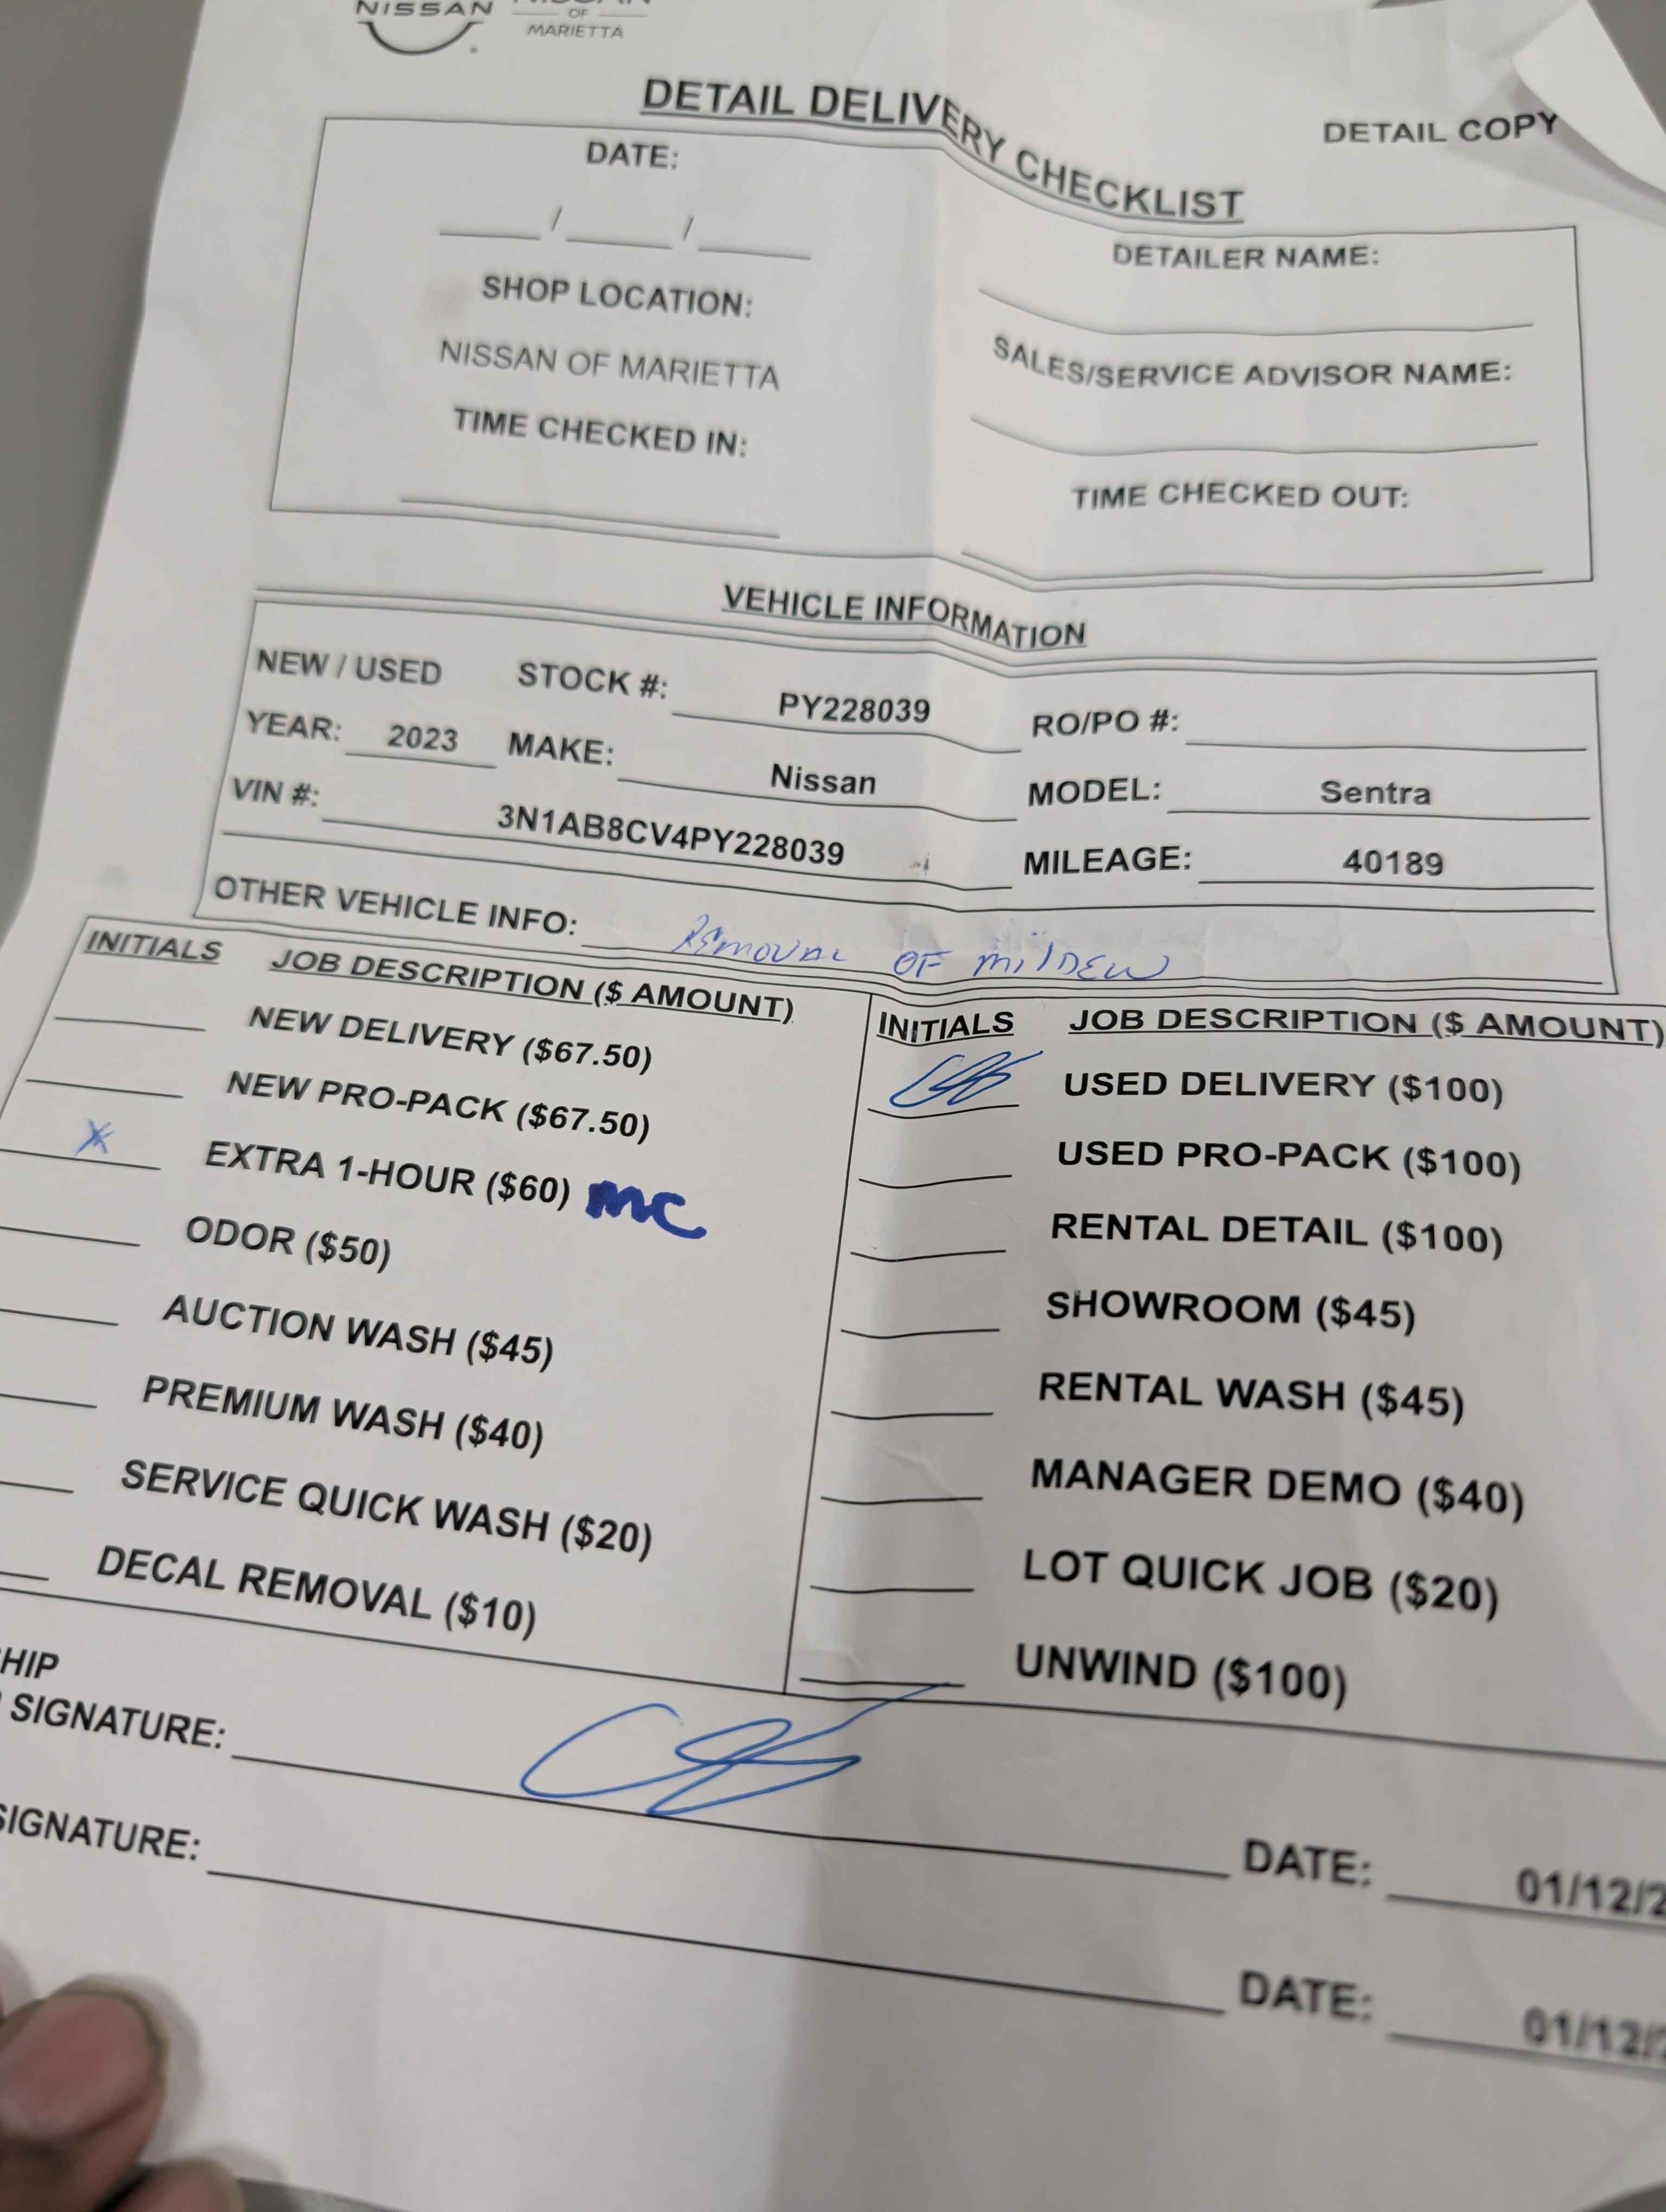 NISSAN
OF
MARIETTA
DETAIL DELIVERY CHECKLIST
DETAIL COPY
DATE:
/ /
SHOP LOCATION:
NISSAN OF MARIETTA
TIME CHECKED IN:
DETAILER NAME:
SALES/SERVICE ADVISOR NAME:
TIME CHECKED OUT:
VEHICLE INFORMATION
NEW / USED STOCK #: PY228039 RO/PO #:
YEAR: 2023 MAKE: Nissan MODEL: Sentra
VIN #: 3N1AB8CV4PY228039 MILEAGE: 40189
OTHER VEHICLE INFO: Removal OF MilDEW
INITIALS JOB DESCRIPTION ($ AMOUNT)
NEW DELIVERY ($67.50)
NEW PRO-PACK ($67.50)
X EXTRA 1-HOUR ($60) MC
ODOR ($50)
AUCTION WASH ($45)
PREMIUM WASH ($40)
SERVICE QUICK WASH ($20)
DECAL REMOVAL ($10)
INITIALS JOB DESCRIPTION ($ AMOUNT)
USED DELIVERY ($100)
USED PRO-PACK ($100)
RENTAL DETAIL ($100)
SHOWROOM ($45)
RENTAL WASH ($45)
MANAGER DEMO ($40)
LOT QUICK JOB ($20)
UNWIND ($100)
HIP
SIGNATURE: DATE: 01/12/2
SIGNATURE: DATE: 01/12/2